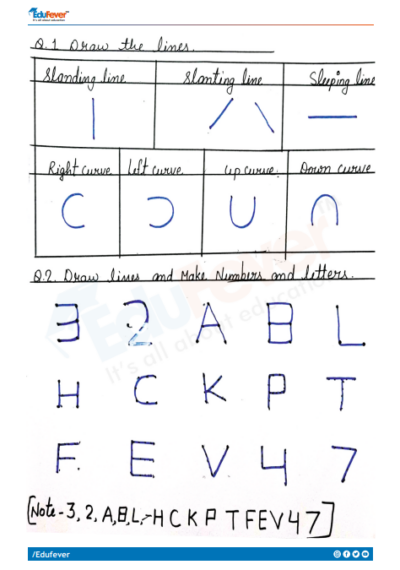 EduFever
It's all about education
Q.1 Draw the lines.
Standing line Slanting line Sleeping line
Right curve Left curve. Up curve. Down curve
Q.2. Draw lines and Make Numbers and letters.
3 2 A B L
H C K P T
F E V 4 7
[Note - 3, 2, A, B, L, - H C K P T F E V 4 7]
EduFever
It's all about education
/Edufever